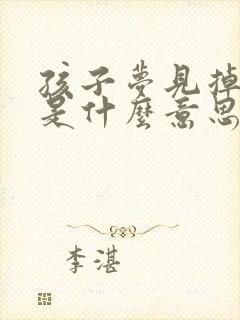 孩子夢見掉
是什麼意思
李湛